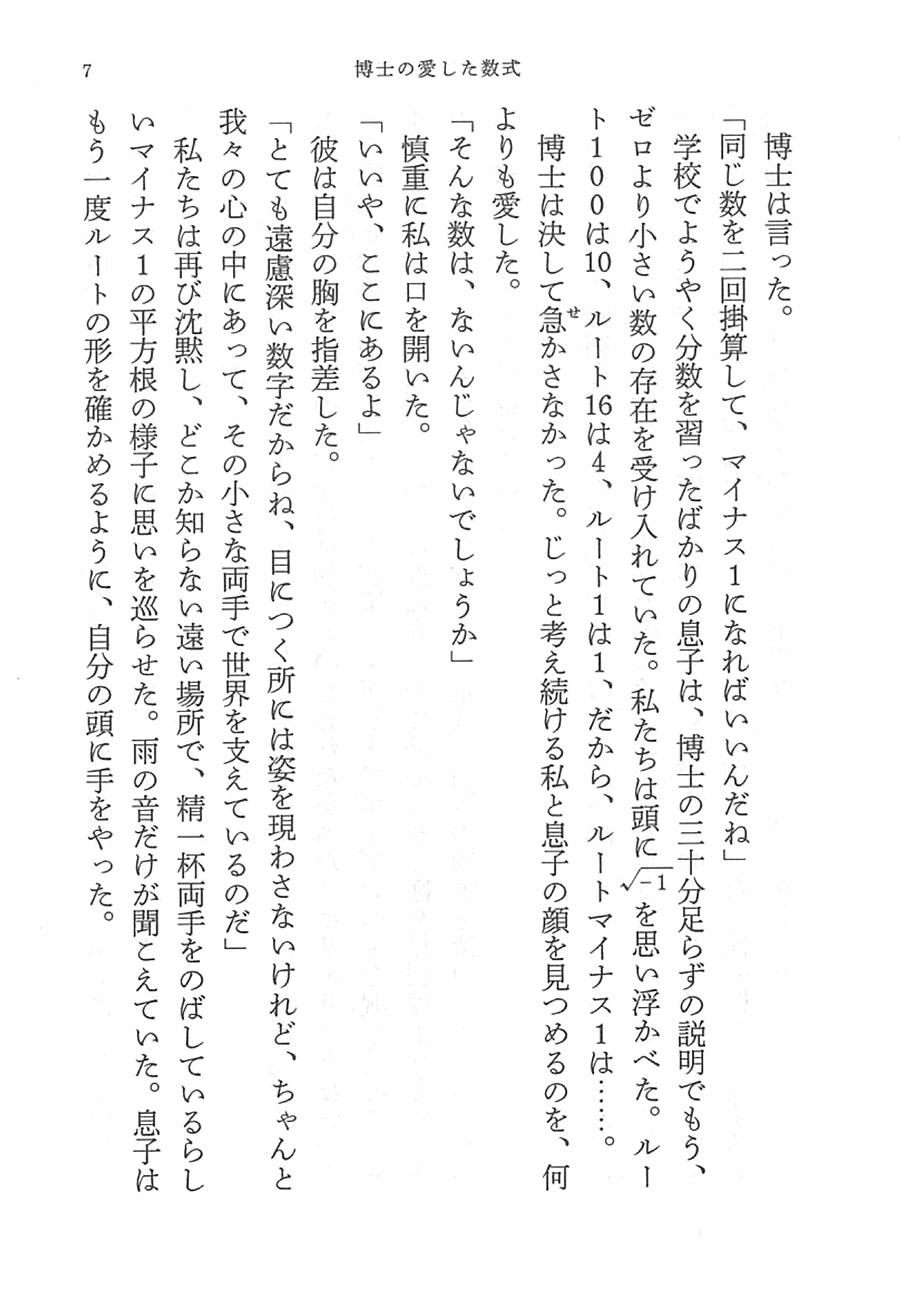 7
博士の愛した数式
博士は言った。
「同じ数を二回掛算して、マイナス1になればいいんだね」
学校でようやく分数を習ったばかりの息子は、博士の三十分足らずの説明でもう、
ゼロより小さい数の存在を受け入れていた。私たちは頭に√-1を思い浮かべた。ルー
ト100は10、ルート16は4、ルート1は1、だから、ルートマイナス1は……。
博士は決して急かさなかった。じっと考え続ける私と息子の顔を見つめるのを、何
せ
よりも愛した。
「そんな数は、ないんじゃないでしょうか」
慎重に私は口を開いた。
「いいや、ここにあるよ」
彼は自分の胸を指差した。
「とても遠慮深い数字だからね、目につく所には姿を現わさないけれど、ちゃんと
我々の心の中にあって、その小さな両手で世界を支えているのだ」
私たちは再び沈黙し、どこか知らない遠い場所で、精一杯両手をのばしているらし
いマイナス1の平方根の様子に思いを巡らせた。雨の音だけが聞こえていた。息子は
もう一度ルートの形を確かめるように、自分の頭に手をやった。